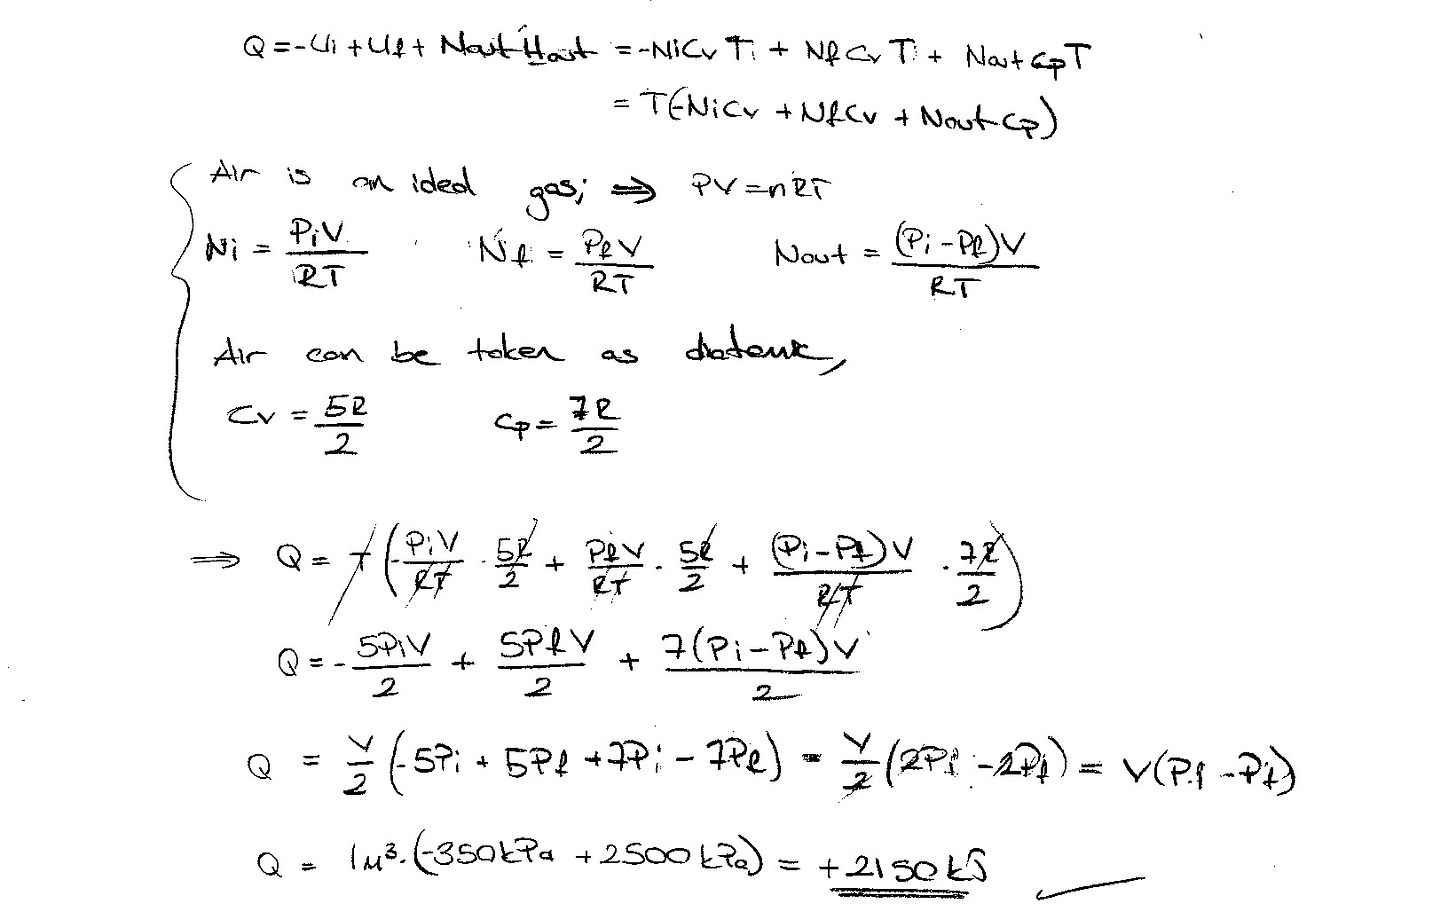 Q = -Ui + Uf + Nout Hout = -NiCvTi + NfCvTi + NoutCpT
= T(-NiCv + NfCv + NoutCp)
Air is an ideal gas; ⇒ PV = nRT
Ni = PiV/RT Nf = PfV/RT Nout = (Pi - Pf)V/RT
Air can be taken as diatomic,
Cv = 5R/2 Cp = 7R/2
⇒ Q = T(-PiV/RT · 5R/2 + PfV/RT · 5R/2 + (Pi - Pf)V/RT · 7R/2)
Q = -5PiV/2 + 5PfV/2 + 7(Pi - Pf)V/2
Q = V/2 (-5Pi + 5Pf + 7Pi - 7Pf) = V/2 (2Pi - 2Pf) = V(Pi - Pf)
Q = 1m³·(-350kPa + 2500kPa) = +2150kJ